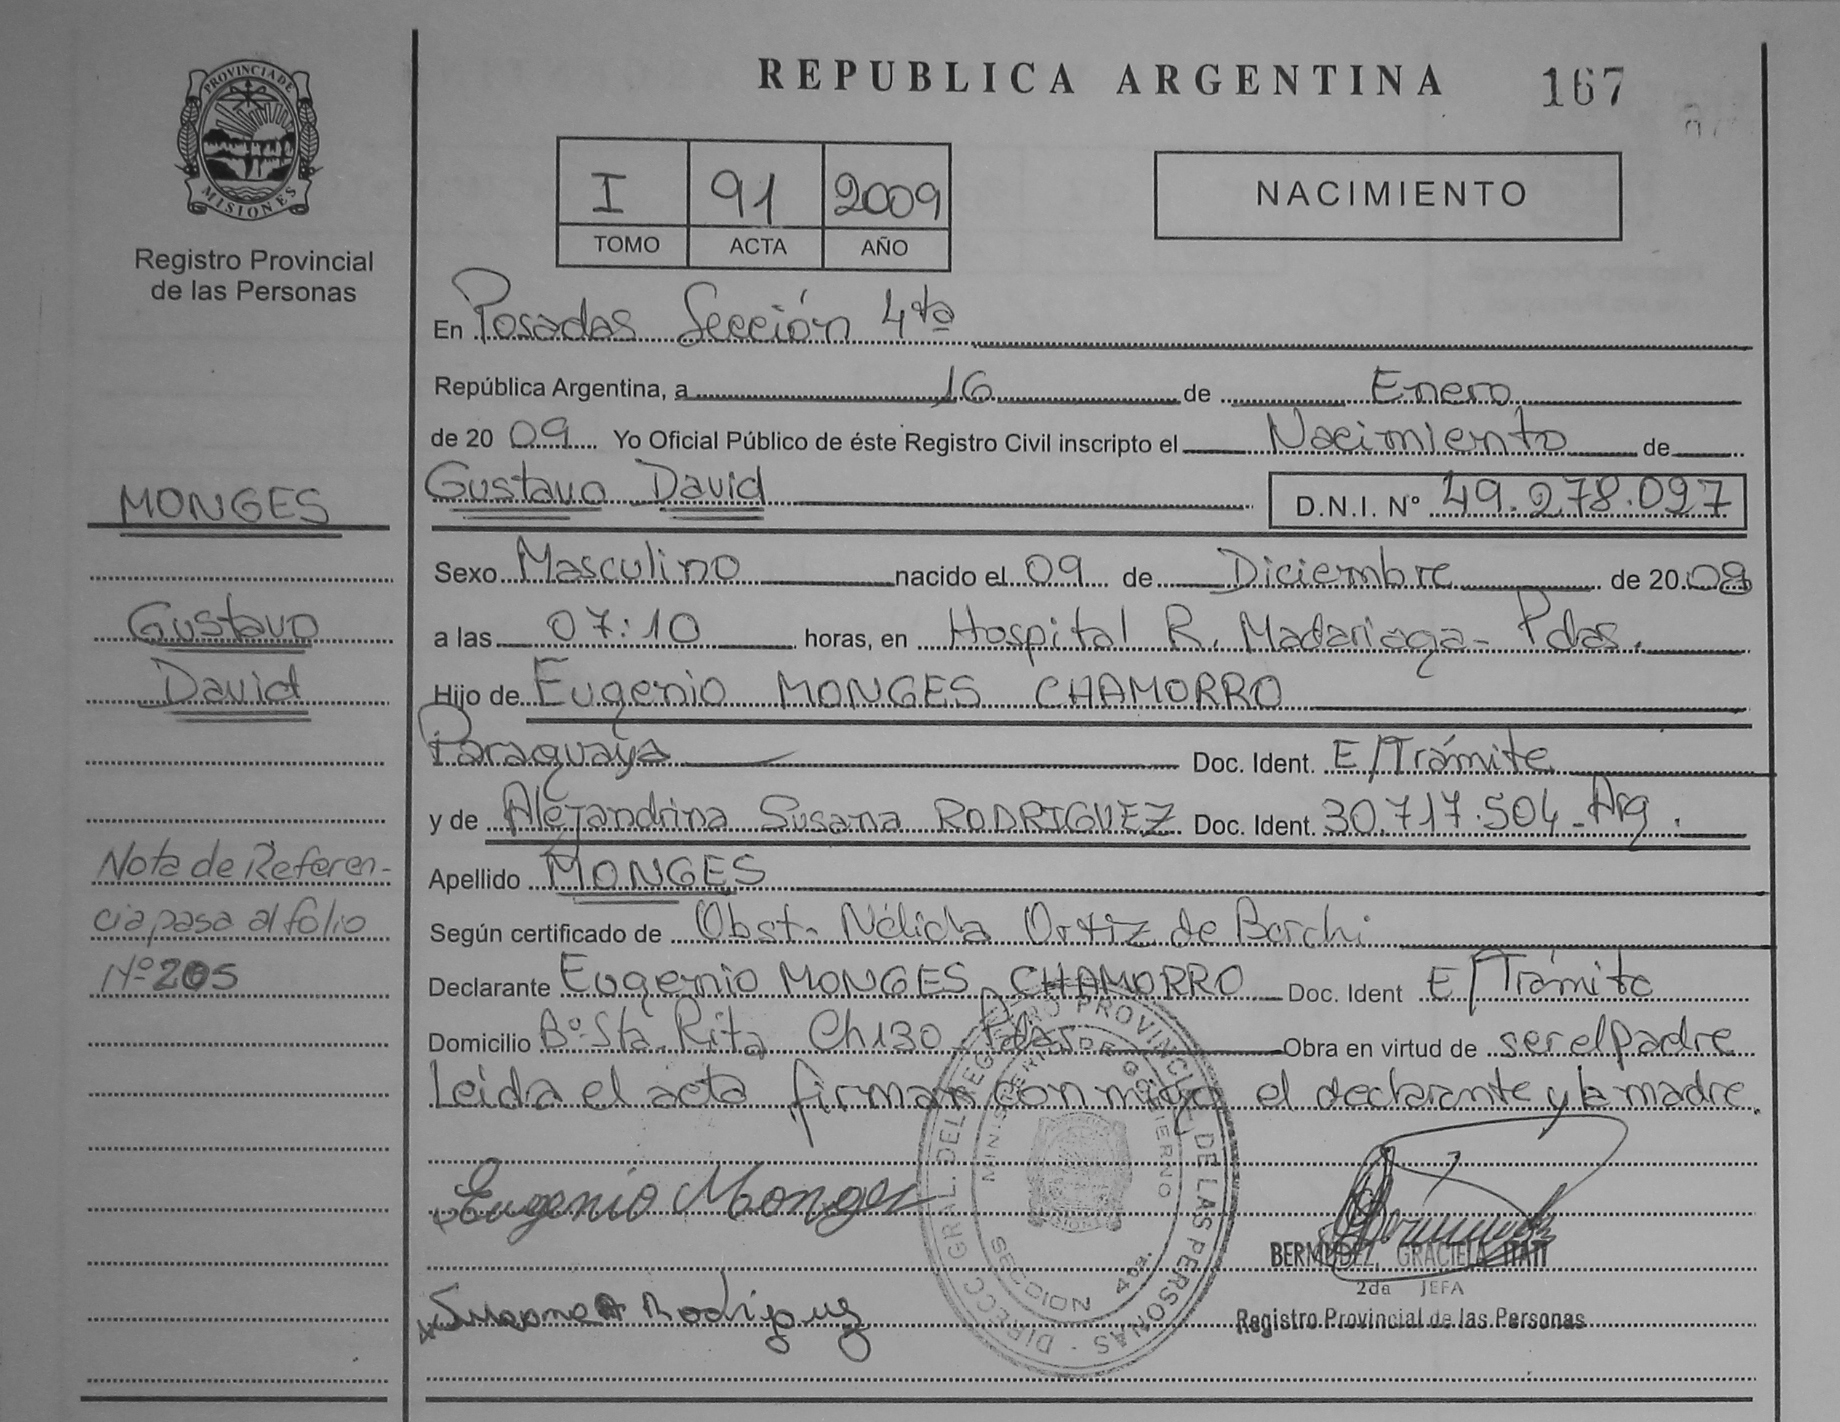 REPUBLICA ARGENTINA 167
PROVINCIA DE
MISIONES
Registro Provincial
de las Personas
I 91 2009
TOMO ACTA AÑO
NACIMIENTO
En Posadas Sección 4ta
República Argentina, a 16 de Enero
de 20 09 Yo Oficial Público de éste Registro Civil inscripto el Nacimiento de
Gustavo David D.N.I. Nº 49.278.097
Sexo Masculino nacido el 09 de Diciembre de 20 08
a las 07:10 horas, en Hospital R. Madariaga - Pdas.
Hijo de Eugenio MONGES CHAMORRO
Paraguaya Doc. Ident. E/Trámite
y de Alejandrina Susana RODRIGUEZ Doc. Ident. 30.717.504 - Arg.
Apellido MONGES
Según certificado de Obst. Nélida Ortiz de Borchi
Declarante Eugenio MONGES CHAMORRO Doc. Ident E/Trámite
Domicilio Bº Sta. Rita Ch 130 Pdas Obra en virtud de ser el padre
Leida el acta firman conmigo el declarante y la madre.
MONGES
Gustavo
David
Nota de Referen-
cia pasa al folio
Nº 205
Eugenio Monges
Susana Rodriguez
DIRECC. GRAL. DEL REGISTRO PROVINCIAL DE LAS PERSONAS
MINISTERIO DE GOBIERNO
SECCION 4ta.
BERMUDEZ, GRACIELA ITATI
2da JEFA
Registro Provincial de las Personas